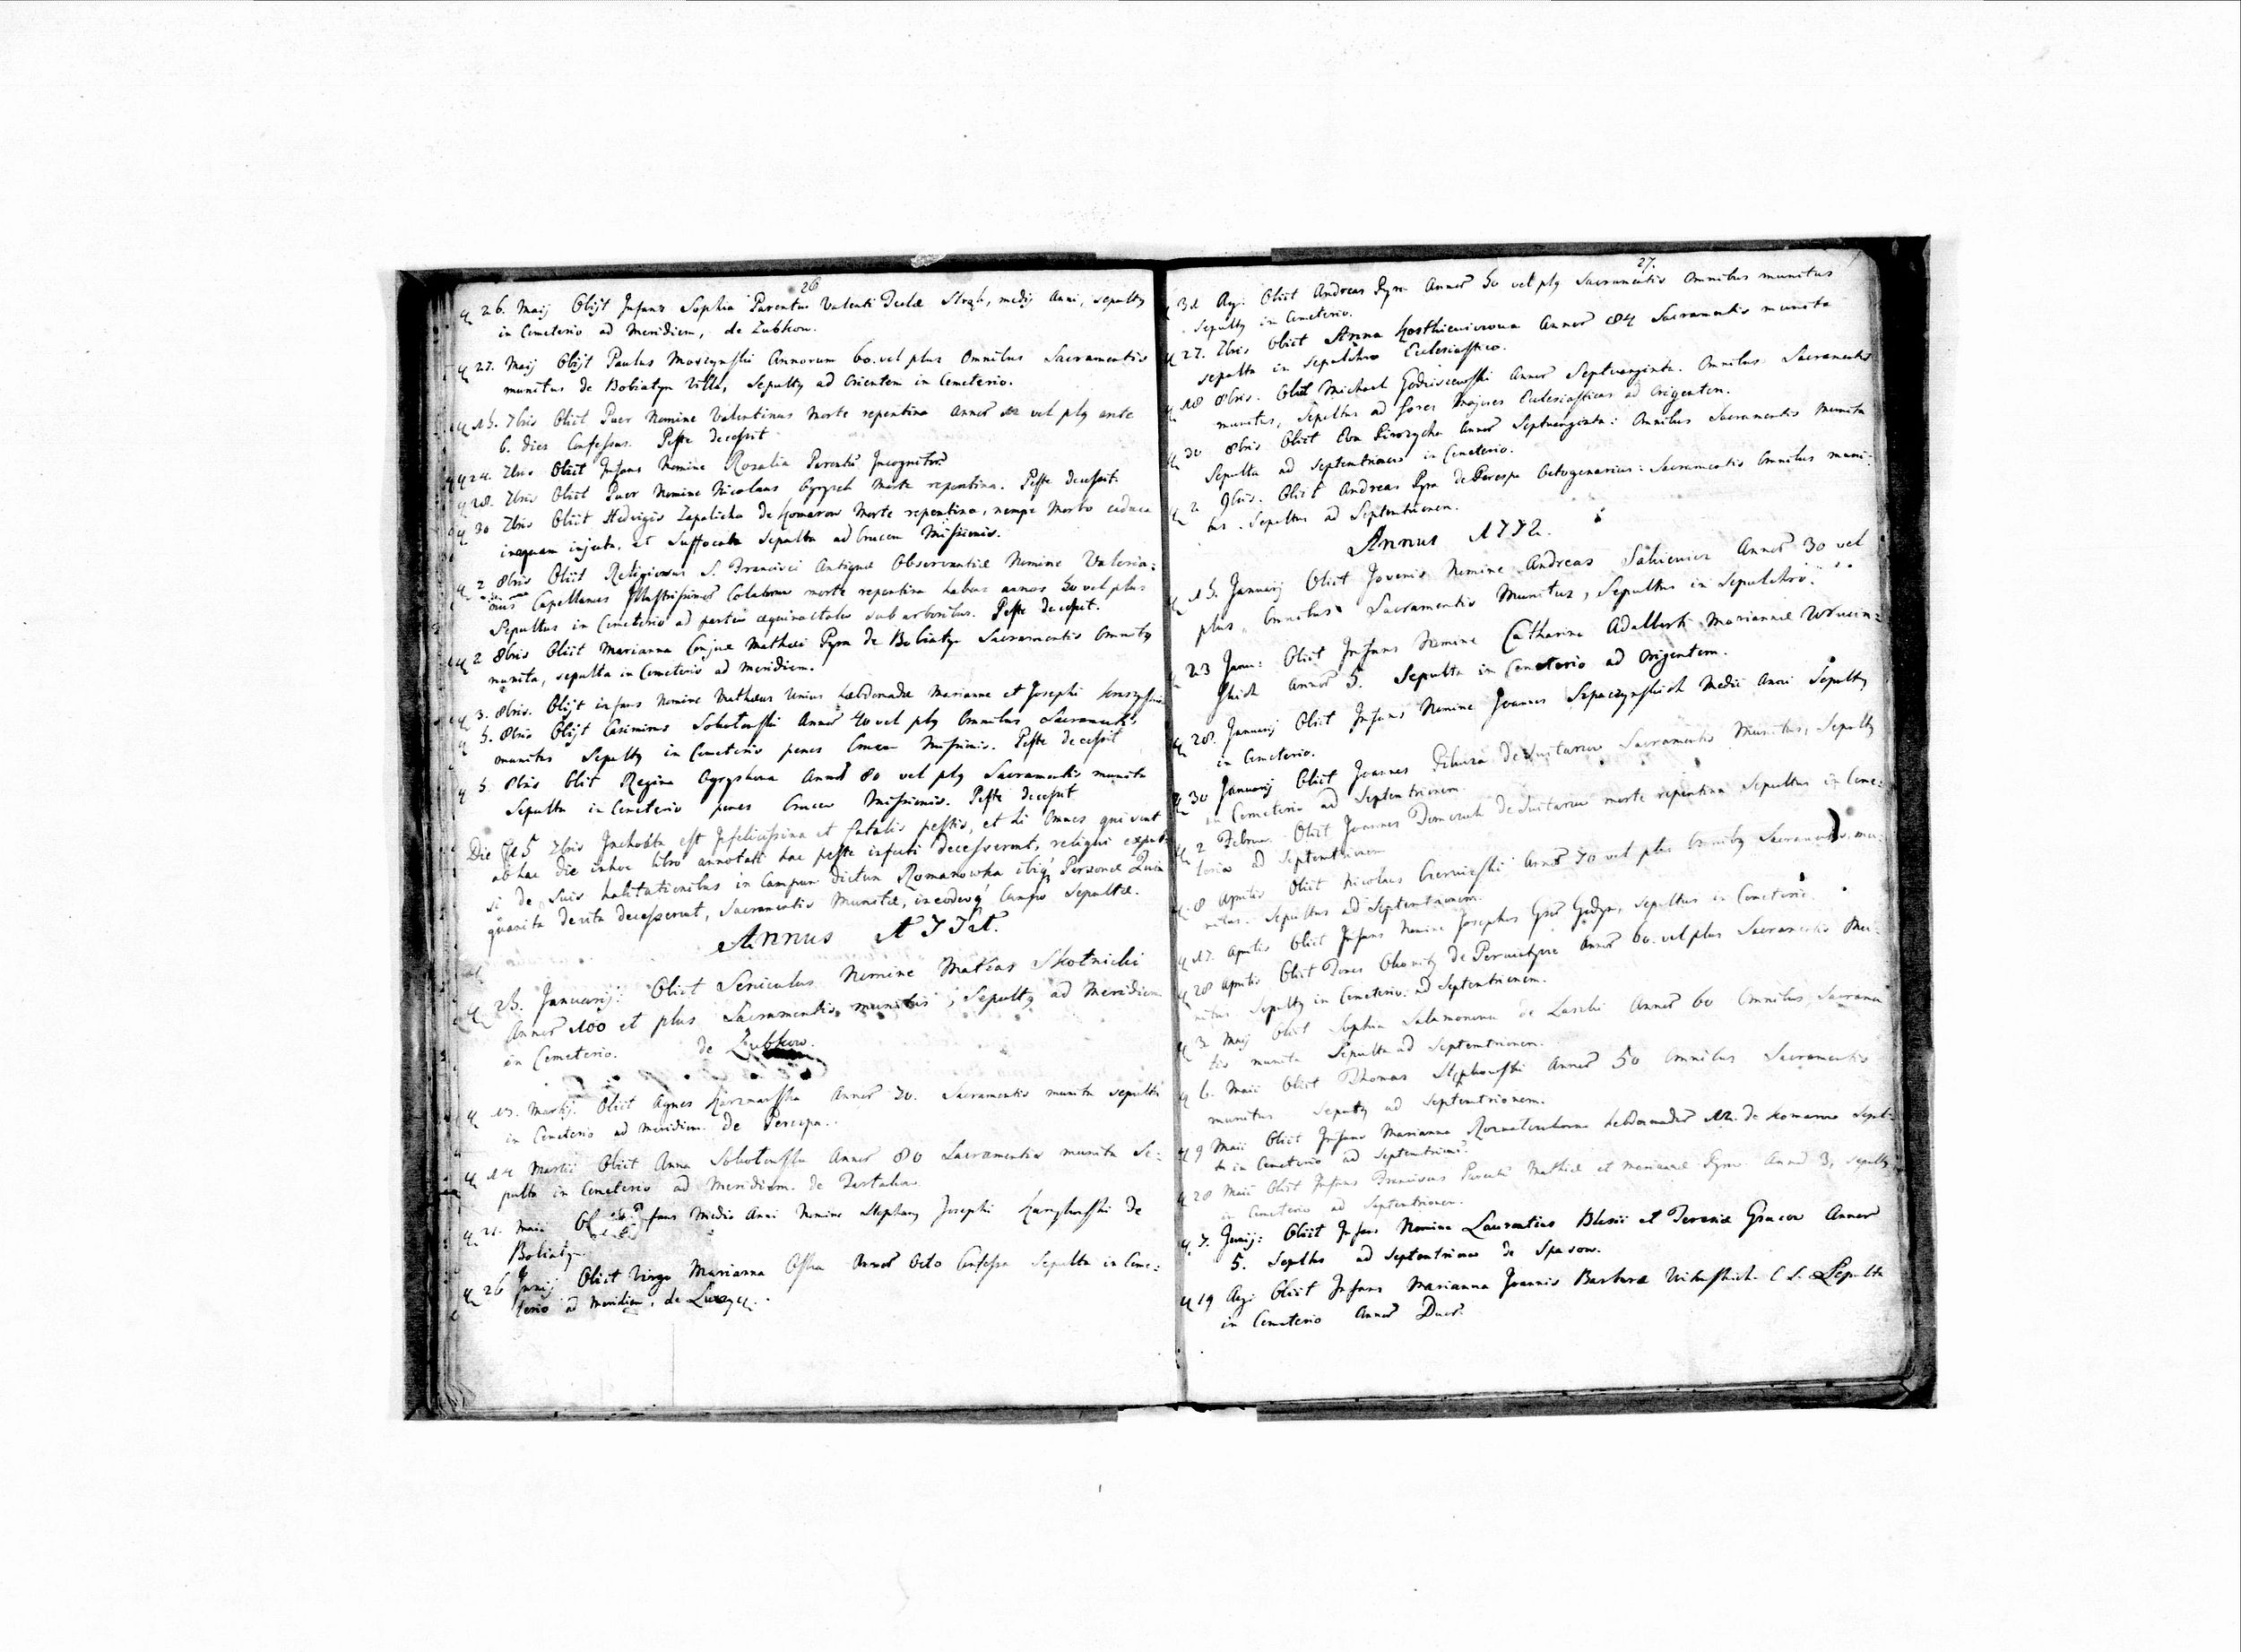 26
26. Maij Obijt Infans Sophia Parentum Valenti Teclæ medij Anni, sepulty
in Cemeterio ad Meridiem, de Zubkow.
27. Maij Obijt Paulus Moszynski Annorum 60. vel plus Omnibus Sacramentis
munitus de Bobiatyn Villa, Sepulty ad Orientem in Cemeterio.
15. 7bris Obiit Puer Nomine Valentinus Morte repentina Annor 12 vel plg ante
6. dies Confessus. Peste decessit
24. 7bris Obiit Infans Nomine Rosalia Parentum Incognitor
28. 7bris Obiit Puer Nomine Nicolaus Morte repentina. Peste decessit.
30 7bris Obiit Hedvigis Zapalicha de Komarow Morte repentina, nempe Morbo caduco
in aquam injecta, et Suffocata Sepulta ad Crucem Missionis.
2 8bris Obiit Religiosus S. Francisci Antiquæ Observantiæ Nomine Valeria:
nus Capellanus Illustrissimor Colatorum morte repentina habens annos 50 vel plus
Sepultus in Cemeterio ad partem æquinoctalem sub arboribus. Peste decessit.
2 8bris Obiit Marianna Conjux Mathæi Pyra de Bobiatyn Sacramentis Omnibg
munita, sepulta in Cemeterio ad meridiem.
3. 8bris. Obijt infans Nomine Mathæus Unius hebdomadæ Marianæ et Josephi
5. 8bris Obijt Casimirus Sokołowski Annor 40 vel plg Omnibus Sacramentis
munitus Sepultg in Cemeterio penes Crucem Missionis. Peste decessit
5. 8bris Obiit Regina Ogryskowa Annor 80 vel plg Sacramentis munita
Sepulta in Cemeterio penes Crucem Missionis. Peste decessit
Die 15 7bris Inchoata est Infelicissima et fatalis pestis, et hi Omnes qui sunt
ab hac die in hoc libro annotati hac peste infecti decesserunt, reliqui expul-
si de Suis habitationibus in Campum dictum Romanowka ibiq Personæ Quin
quaginta de vita decesserunt, Sacramentis Munitæ, in eodemq Campo Sepultæ.
Annus 1771.
23. Januarij: Obiit Seniculus Nomine Mathias Skotnicki
Annor 100 et plus Sacramentis munitus, Sepultg ad Meridiem
in Cemeterio. de Zubkow.
13. Martij. Obiit Agnes Karzmarska Annor 70. Sacramentis munita sepulta
in Cemeterio ad Meridiem. de Perespa.
14 Martii Obiit Anna Sokołowska Annor 80 Sacramentis munita Se:
pulta in Cemeterio ad Meridiem. de Tartakow
21. Maii Infans Medio Anni Nomine Stephang Josephi de
Bobiatyn.
26 Junij Obiit Virgo Marianna Annor Octo Confessa Sepulta in Ceme:
terio ad Meridiem. de
27.
31. Aug: Obiit Andreas Pyra Annor 50 vel plg Sacramentis Omnibus munitus
Sepultg in Cemeterio.
27. 7bris Obiit Anna Annor 84 Sacramentis munita
sepulta in sepulchro Ecclesiastico.
18 8bris. Obiit Michael Godziszewski Annor Septuaginta. Omnibus Sacramentis
munitus, Sepultus ad fores Majores Ecclesiasticas ad Origentem.
30 8bris Obiit Eva Annor Septuaginta: Omnibus Sacramentis munita
Sepulta ad Septentrionem in Cemeterio.
2 9bris. Obiit Andreas Pyra de Perespa Octogenarius: Sacramentis Omnibus muni:
tus. Sepultus ad Septentrionem.
Annus 1772.
15. Januarij Obiit Juvenis Nomine Andreas Annor 30 vel
plus Omnibus Sacramentis Munitus, Sepultus in Sepulchro.
23 Janu: Obiit Infans Nomine Catharina Adalberti Mariannæ
Annor 5. Sepulta in Cemeterio ad Origentem.
28. Januarij Obiit Infans Nomine Joannes Medii Anni Sepultg
in Cemeterio.
30 Januarij Obiit Joannes Sacramentis Munitus, Sepultg
in Cemeterio ad Septentrionem.
2 Februar Obiit Joannes morte repentina Sepultus in Ceme:
terio ad Septentrionem
8 Aprilis Obiit Nicolaus Annor 70 vel plus Omnibg Sacramentis mu:
nitus. Sepultus ad Septentrionem.
17. Aprilis Obiit Infans Nomine Josephus sepultus in Cemeterio.
28 Aprilis Obiit Annor 60. vel plus Sacramentis Mu:
nitus Sepultg in Cemeterio ad Septentrionem.
3. Maij Obiit Sophia Salamonowa de Laszki Annor 60 Omnibus Sacramen
tis munita Sepulta ad Septentrionem.
6. Maii Obiit Thomas Annor 50 Omnibus Sacramentis
munitus Sepultg ad Septentrionem.
9 Maii Obiit Infans Marianna hebdomadar 12. de Komarow Sepul:
ta in Cemeterio ad Septentrionem
28 Maii Obiit Infans Franciscus Parentum Mathiæ et Mariannæ Pyra Annor 3, sepultg
in Cemeterio ad Septentrionem.
7. Junij: Obiit Infans Nomine Laurentius Blasii et Teresiæ Annor
5. Sepultus ad Septentrionem de Spasow.
19 Aug: Obiit Infans Marianna Joannis Barbaræ C. L. Sepulta
in Cemeterio Annor Duor.